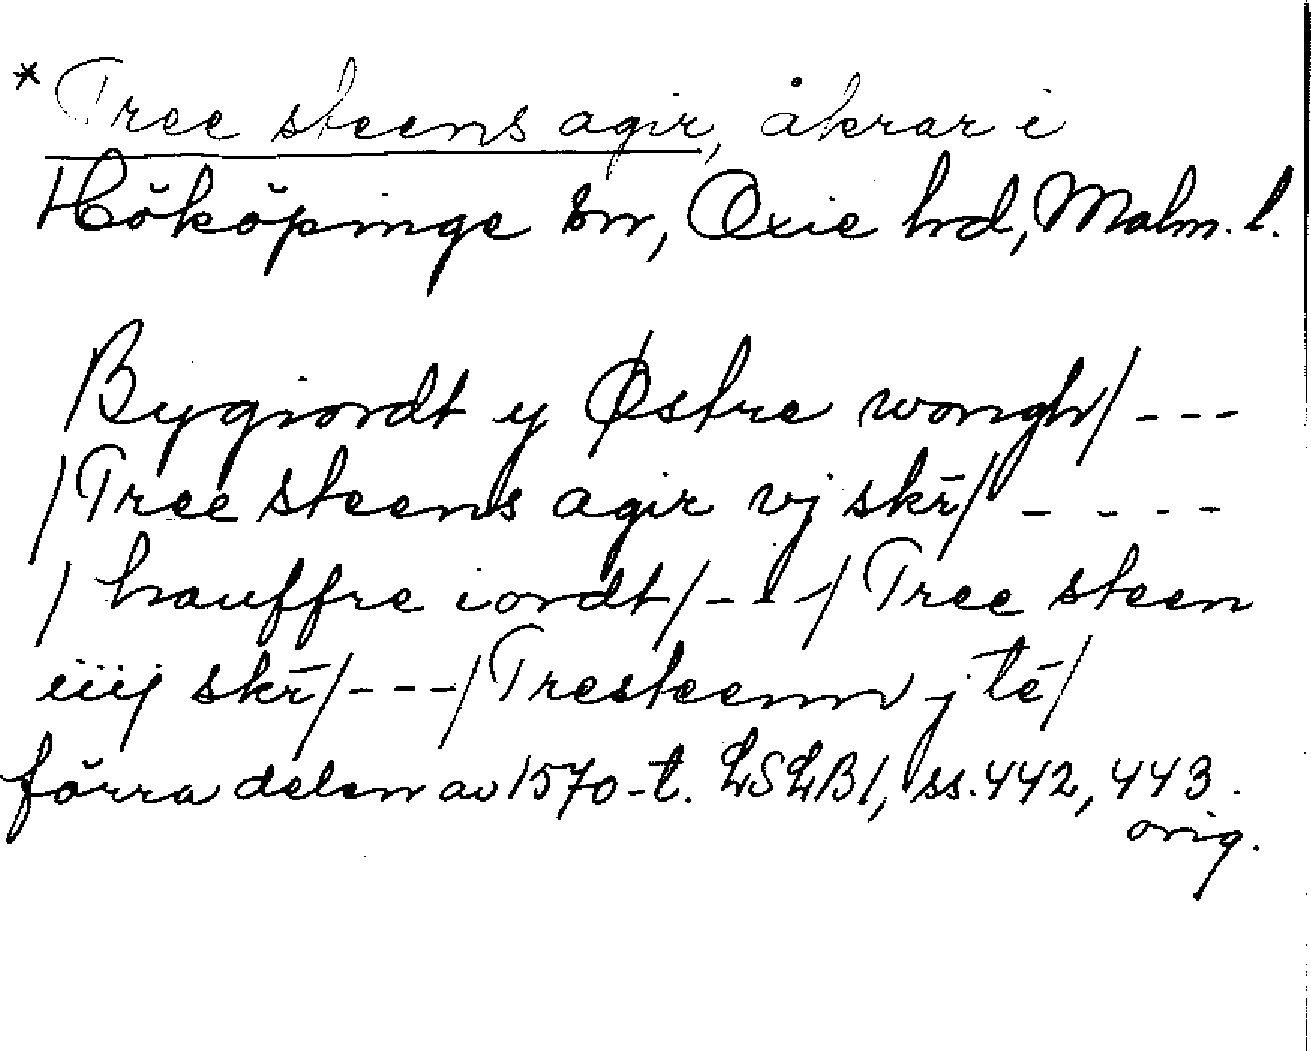 * Tree steens agir, åkrar i
Hököpinge sn, Oxie hd, Malm. l.
Bygiordt y Østre wongh/ ---
/Tree steens agir vj skr̄/ - - - -
/ hauffre iordt/ --- / Tree steen
iiij skr̄/ --- / Tresteenn j tē/
förra delen av 1570-t. LSLB1, ss. 442, 443.
orig.